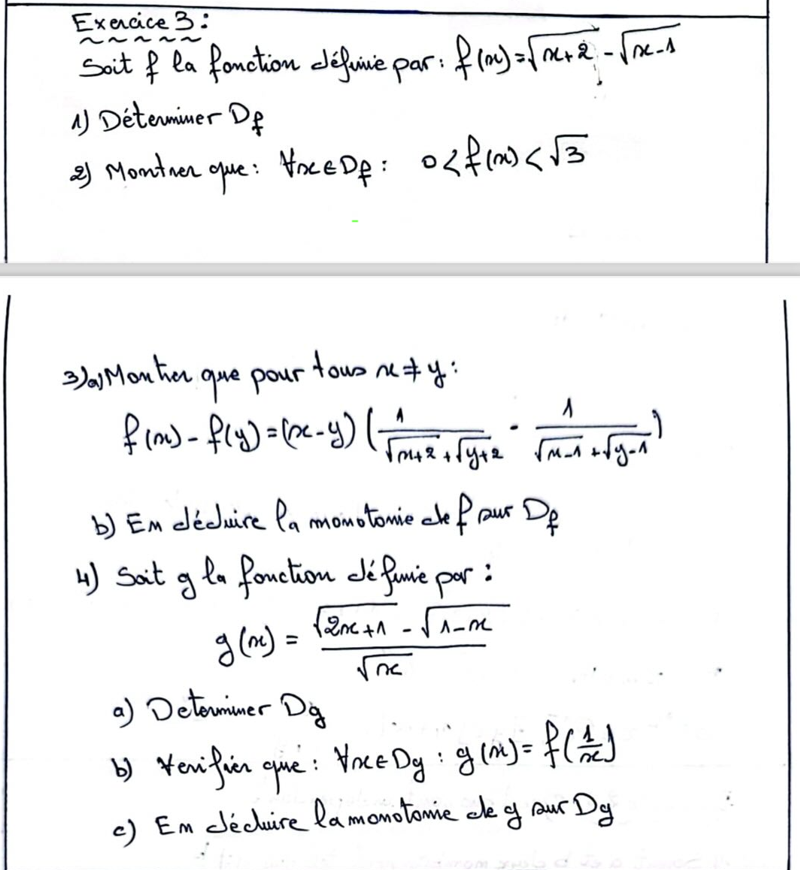 Exercice 3 :
Soit f la fonction définie par : f(x) = √(x+2) - √(x-1)
1) Déterminer Df
2) Montrer que : ∀x∈Df : 0 < f(x) < √3
3) a) Montrer que pour tous x ≠ y :
f(x) - f(y) = (x-y) (1/(√(x+2) + √(y+2)) - 1/(√(x-1) + √(y-1)))
b) En déduire la monotonie de f sur Df
4) Soit g la fonction définie par :
g(x) = (√(2x+1) - √(1-x))/√x
a) Determiner Dg
b) Verifier que : ∀x∈Dg : g(x) = f(1/x)
c) En déduire la monotonie de g sur Dg